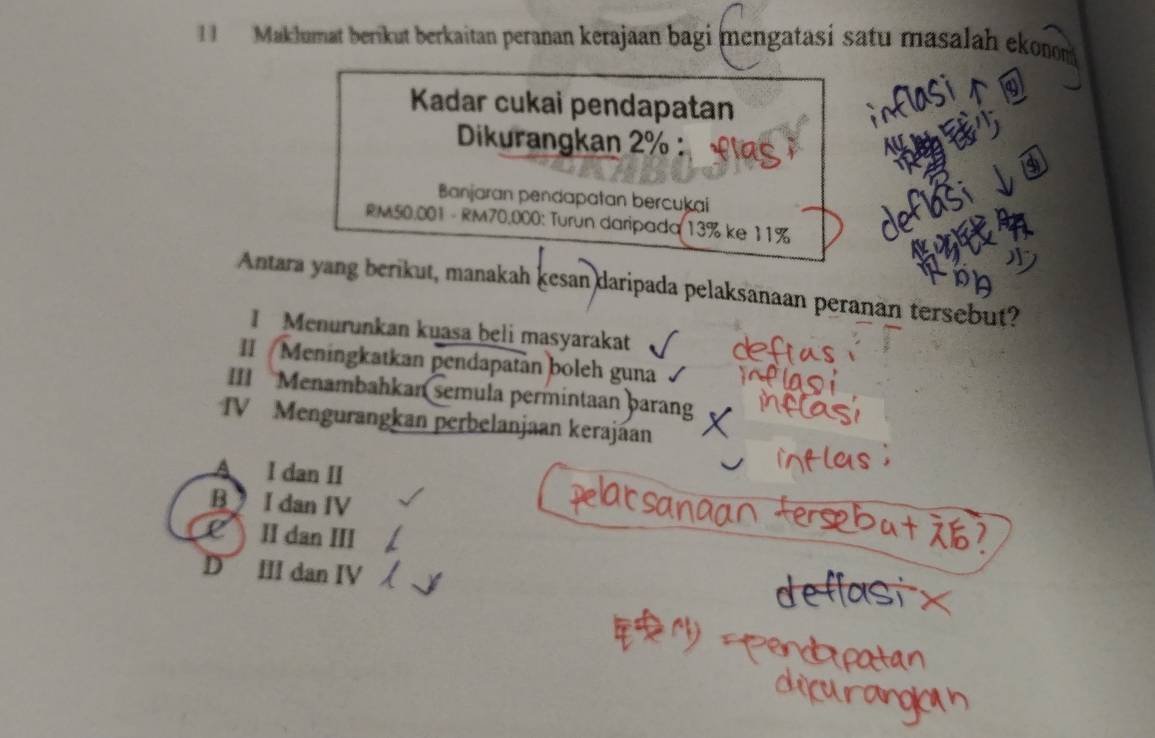 11 Maklumat berikut berkaitan peranan kerajaan bagi mengatasi satu masalah ekonomi
Kadar cukai pendapatan
Dikurangkan 2% : flasi
Banjaran pendapatan bercukai
RM50.001 - RM70.000: Turun daripada 13% ke 11%
inflasi ↑
货 钱少
deflasi ↓
货 钱
少
Antara yang berikut, manakah kesan daripada pelaksanaan peranan tersebut?
I Menurunkan kuasa beli masyarakat ✓ deflasi
II Meningkatkan pendapatan boleh guna ✓ inflasi
III Menambahkan semula permintaan barang X inflasi
IV Mengurangkan perbelanjaan kerajaan ✓ inflasi
A I dan II
B I dan IV ✓
C II dan III
D III dan IV
pelaksanaan tersebut 后?
deflasi X
钱少 =pendapatan
dikurangkan